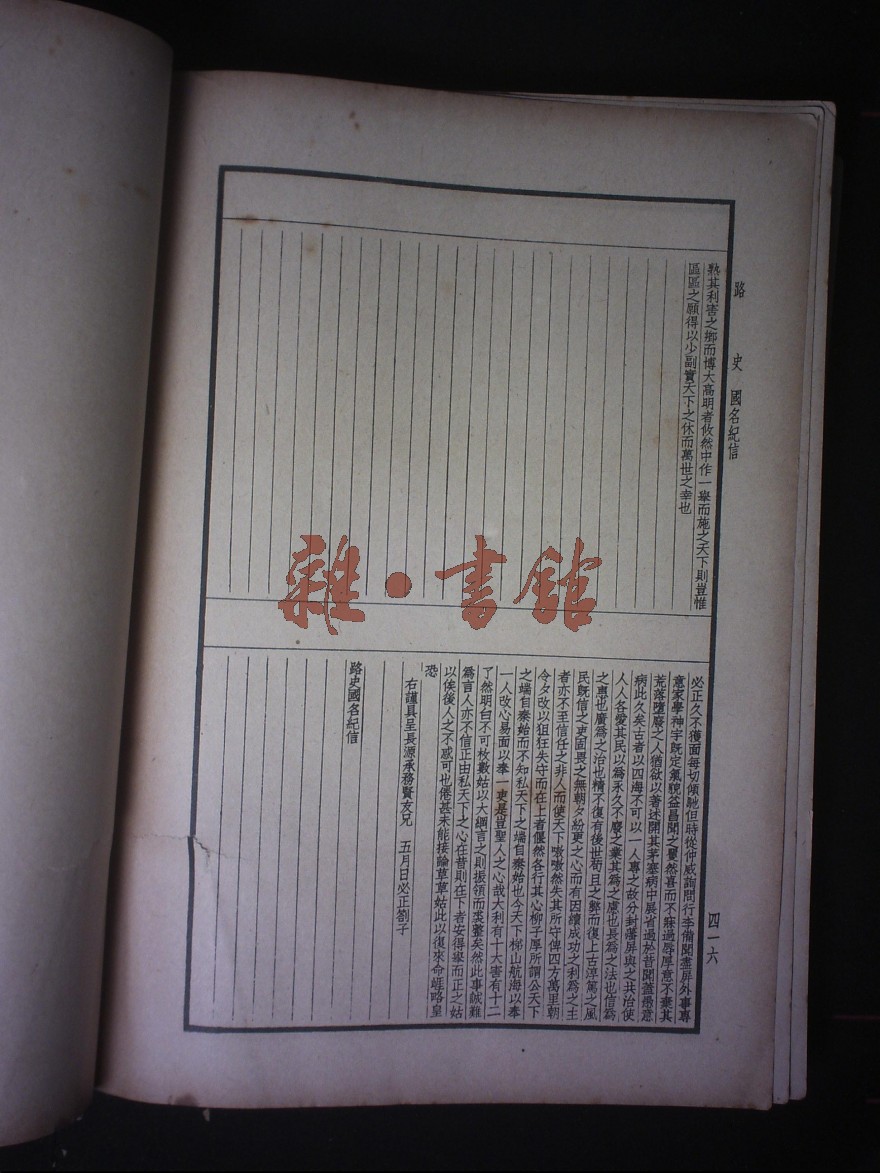 路史 國名紀信
熟其利害之鄉而博大高明者攸然中作一舉而施之天下則豈惟
區區之願得以少副實天下之休而萬世之幸也
必正久不獲面每切傾馳但時從仲威詢問行李備聞盡屏外事專
意家學神宇旣定氣貌益昌聞之矍然喜而不寐過辱厚意不棄其
荒落墮廢之人猶欲以著述開其茅塞病中展省過於昔聞蓋愚意
病此久矣古者以四海不可以一人專之故分封藩屏與之共治使
人人各愛其民以爲永久不廢之業其爲之慮也長爲之法也信爲
之惠也廣爲之治也精不復有後世苟且之弊而復上古淳篤之風
民旣信之吏固畏之無朝夕紛更之心而有因讀成功之利爲之主
者亦不至信任之非人而使天下嗷嗷然失其所守俾四方萬里朝
令夕改以狙狂失守而在上者偃然各行其心柳子厚所謂公天下
之端自秦始而不知私天下之端自秦始也今天下梯山航海以奉
一人改心易面以奉一吏是豈聖人之心哉大利有十大害有十二
了然明白不可枚數姑以大綱言之則振領而裘整矣然此事誠難
爲言人亦不信正由私天下之心在昔則在下者安得舉而正之姑
以俟後人之不惑可也倦甚未能接論草草姑此以復來命崕略皇
恐
右謹具呈長源承務賢友兄 五月日必正劄子
路史國名紀信
四一六
雜·書館